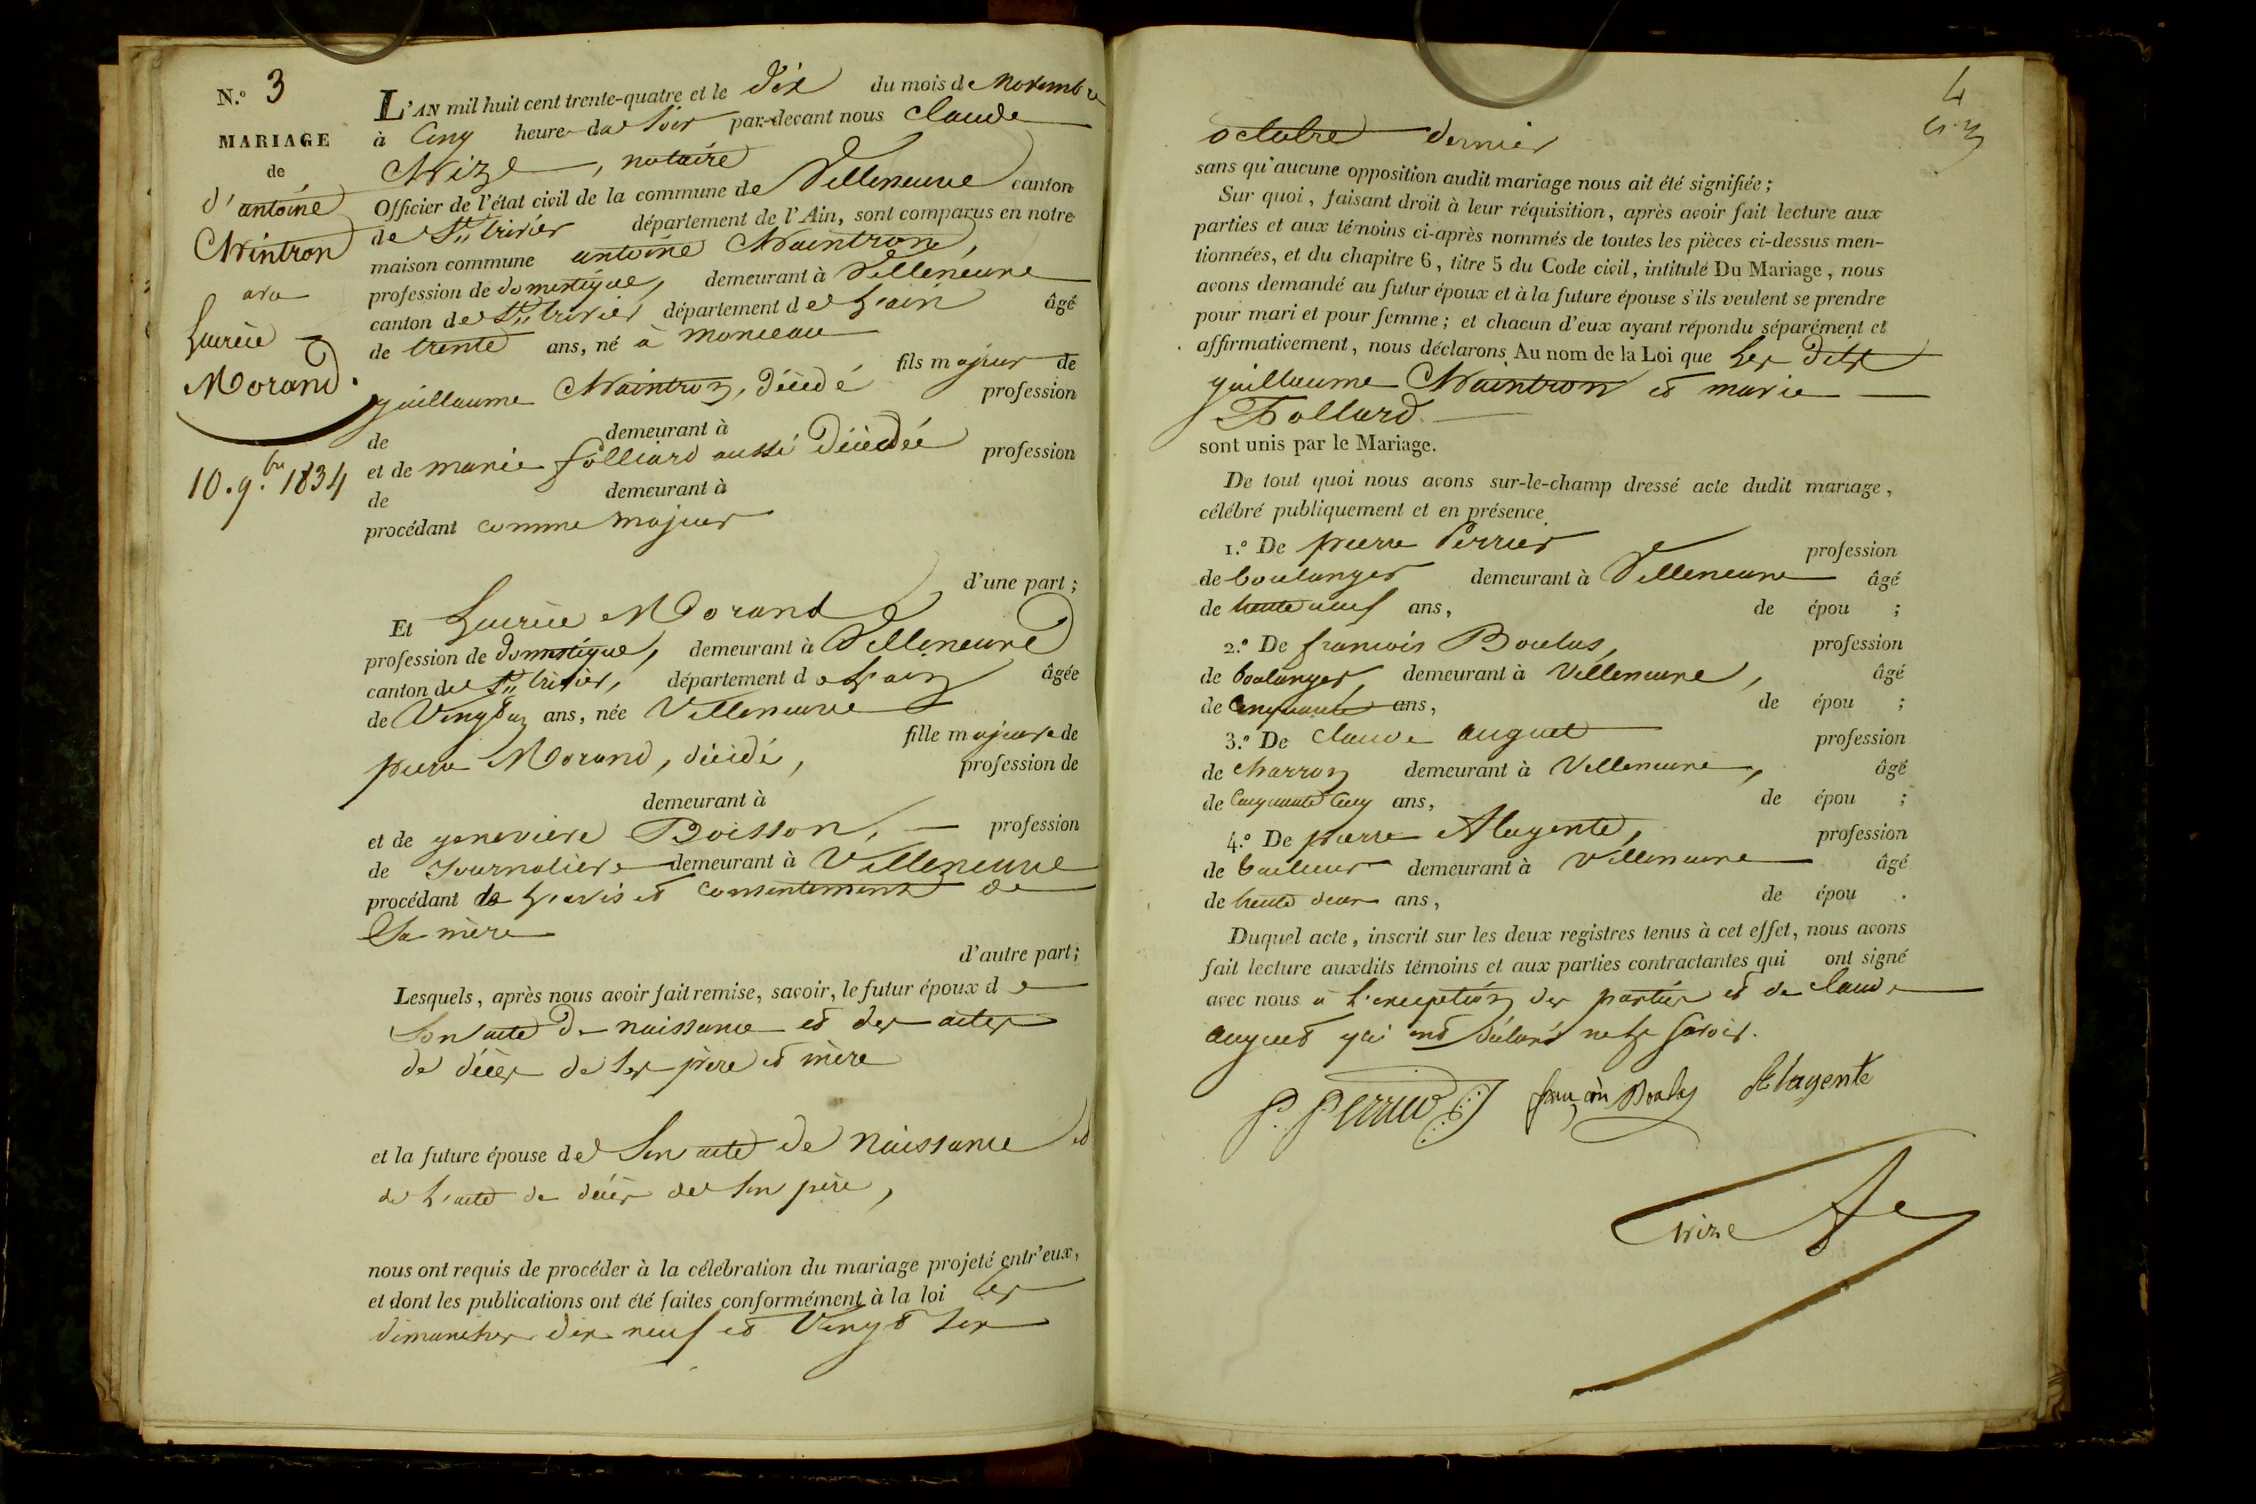 N.º 3
MARIAGE
de
d'antoine
Maintron
avec
Lucrèce
Morand.
10. 9.bre 1834
L'AN mil huit cent trente-quatre et le dix du mois de Novembre
à Cinq heure du Soir par-devant nous Claude
Mize, notaire
Officier de l'état civil de la commune de Villeneuve canton
de St trivier département de l'Ain, sont comparus en notre
maison commune antoine Maintron,
profession de domestique, demeurant à Villeneuve
canton de St trivier département de L'ain âgé
de trente ans, né à monceau
fils majeur de
guillaume Maintron, décédé profession
de demeurant à
et de marie folliard aussi décédée profession
de demeurant à
procédant comme majeur
d'une part ;
Et Lucrèce Morand
profession de domestique, demeurant à Villeneuve
canton de St trivier, département de L'ain âgée
de Vingt ans, née Villeneuve
fille majeure de
pierre Morand, décédé, profession de
demeurant à
et de genevieve Boisson, profession
de Journalière demeurant à Villeneuve
procédant de L'avis et consentement de
Sa mère
d'autre part ;
Lesquels, après nous avoir fait remise, savoir, le futur époux de
Son acte de naissance et des actes
de décès de Ses père et mère
et la future épouse de Son acte de Naissance et
de L'acte de décès de Son père,
nous ont requis de procéder à la célébration du mariage projeté entr'eux,
et dont les publications ont été faites conformément à la loi les
dimanches dix neuf et Vingt Six
4
octobre dernier
sans qu'aucune opposition audit mariage nous ait été signifiée ;
Sur quoi, faisant droit à leur réquisition, après avoir fait lecture aux
parties et aux témoins ci-après nommés de toutes les pièces ci-dessus men-
tionnées, et du chapitre 6, titre 5 du Code civil, intitulé Du Mariage, nous
avons demandé au futur époux et à la future épouse s'ils veulent se prendre
pour mari et pour femme ; et chacun d'eux ayant répondu séparément et
affirmativement, nous déclarons Au nom de la Loi que Les dits
guillaume Maintron et marie
Follard
sont unis par le Mariage.
De tout quoi nous avons sur-le-champ dressé acte dudit mariage,
célébré publiquement et en présence
1.º De pierre Perrier profession
de boulanger demeurant à Villeneuve âgé
de trente neuf ans, de épou ;
2.º De francois Boulas, profession
de boulanger, demeurant à Villeneuve, âgé
de Cinquante ans, de épou ;
3.º De Claude auguet profession
de charron demeurant à Villeneuve, âgé
de Cinquante Cinq ans, de épou ;
4.º De pierre Alagente, profession
de tailleur demeurant à Villeneuve âgé
de trente deux ans, de épou .
Duquel acte, inscrit sur les deux registres tenus à cet effet, nous avons
fait lecture auxdits témoins et aux parties contractantes qui ont signé
avec nous à l'exception des parties et de Claude
auguet qui ont déclaré ne le Savoir.
P. Perrier françois Boulas Alagente
Mize